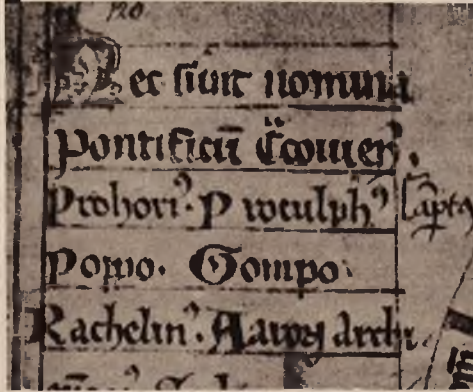 120
Hec sunt nomina
Pontificū Cͣcouien̄.
Prohoriꝰ. Proculphꝰ Lāp̲tꝰ
Popo. Gompo.
Rachelinꝰ. Aaron archi